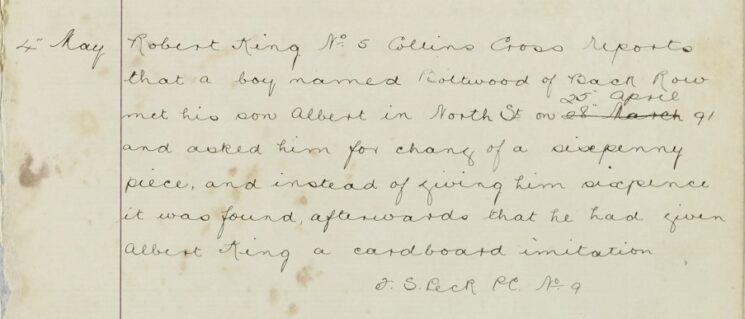 4" May Robert King No. 5 Collins Cross reports
that a boy named Boltwood of Back Row
25" April
met his son Albert in North St on 28" March 91
and asked him for chang of a sixpenny
piece, and instead of giving him sixpence
it was found, afterwards that he had given
Albert King a cardboard imitation
J. S. Peck P.C. No. 9